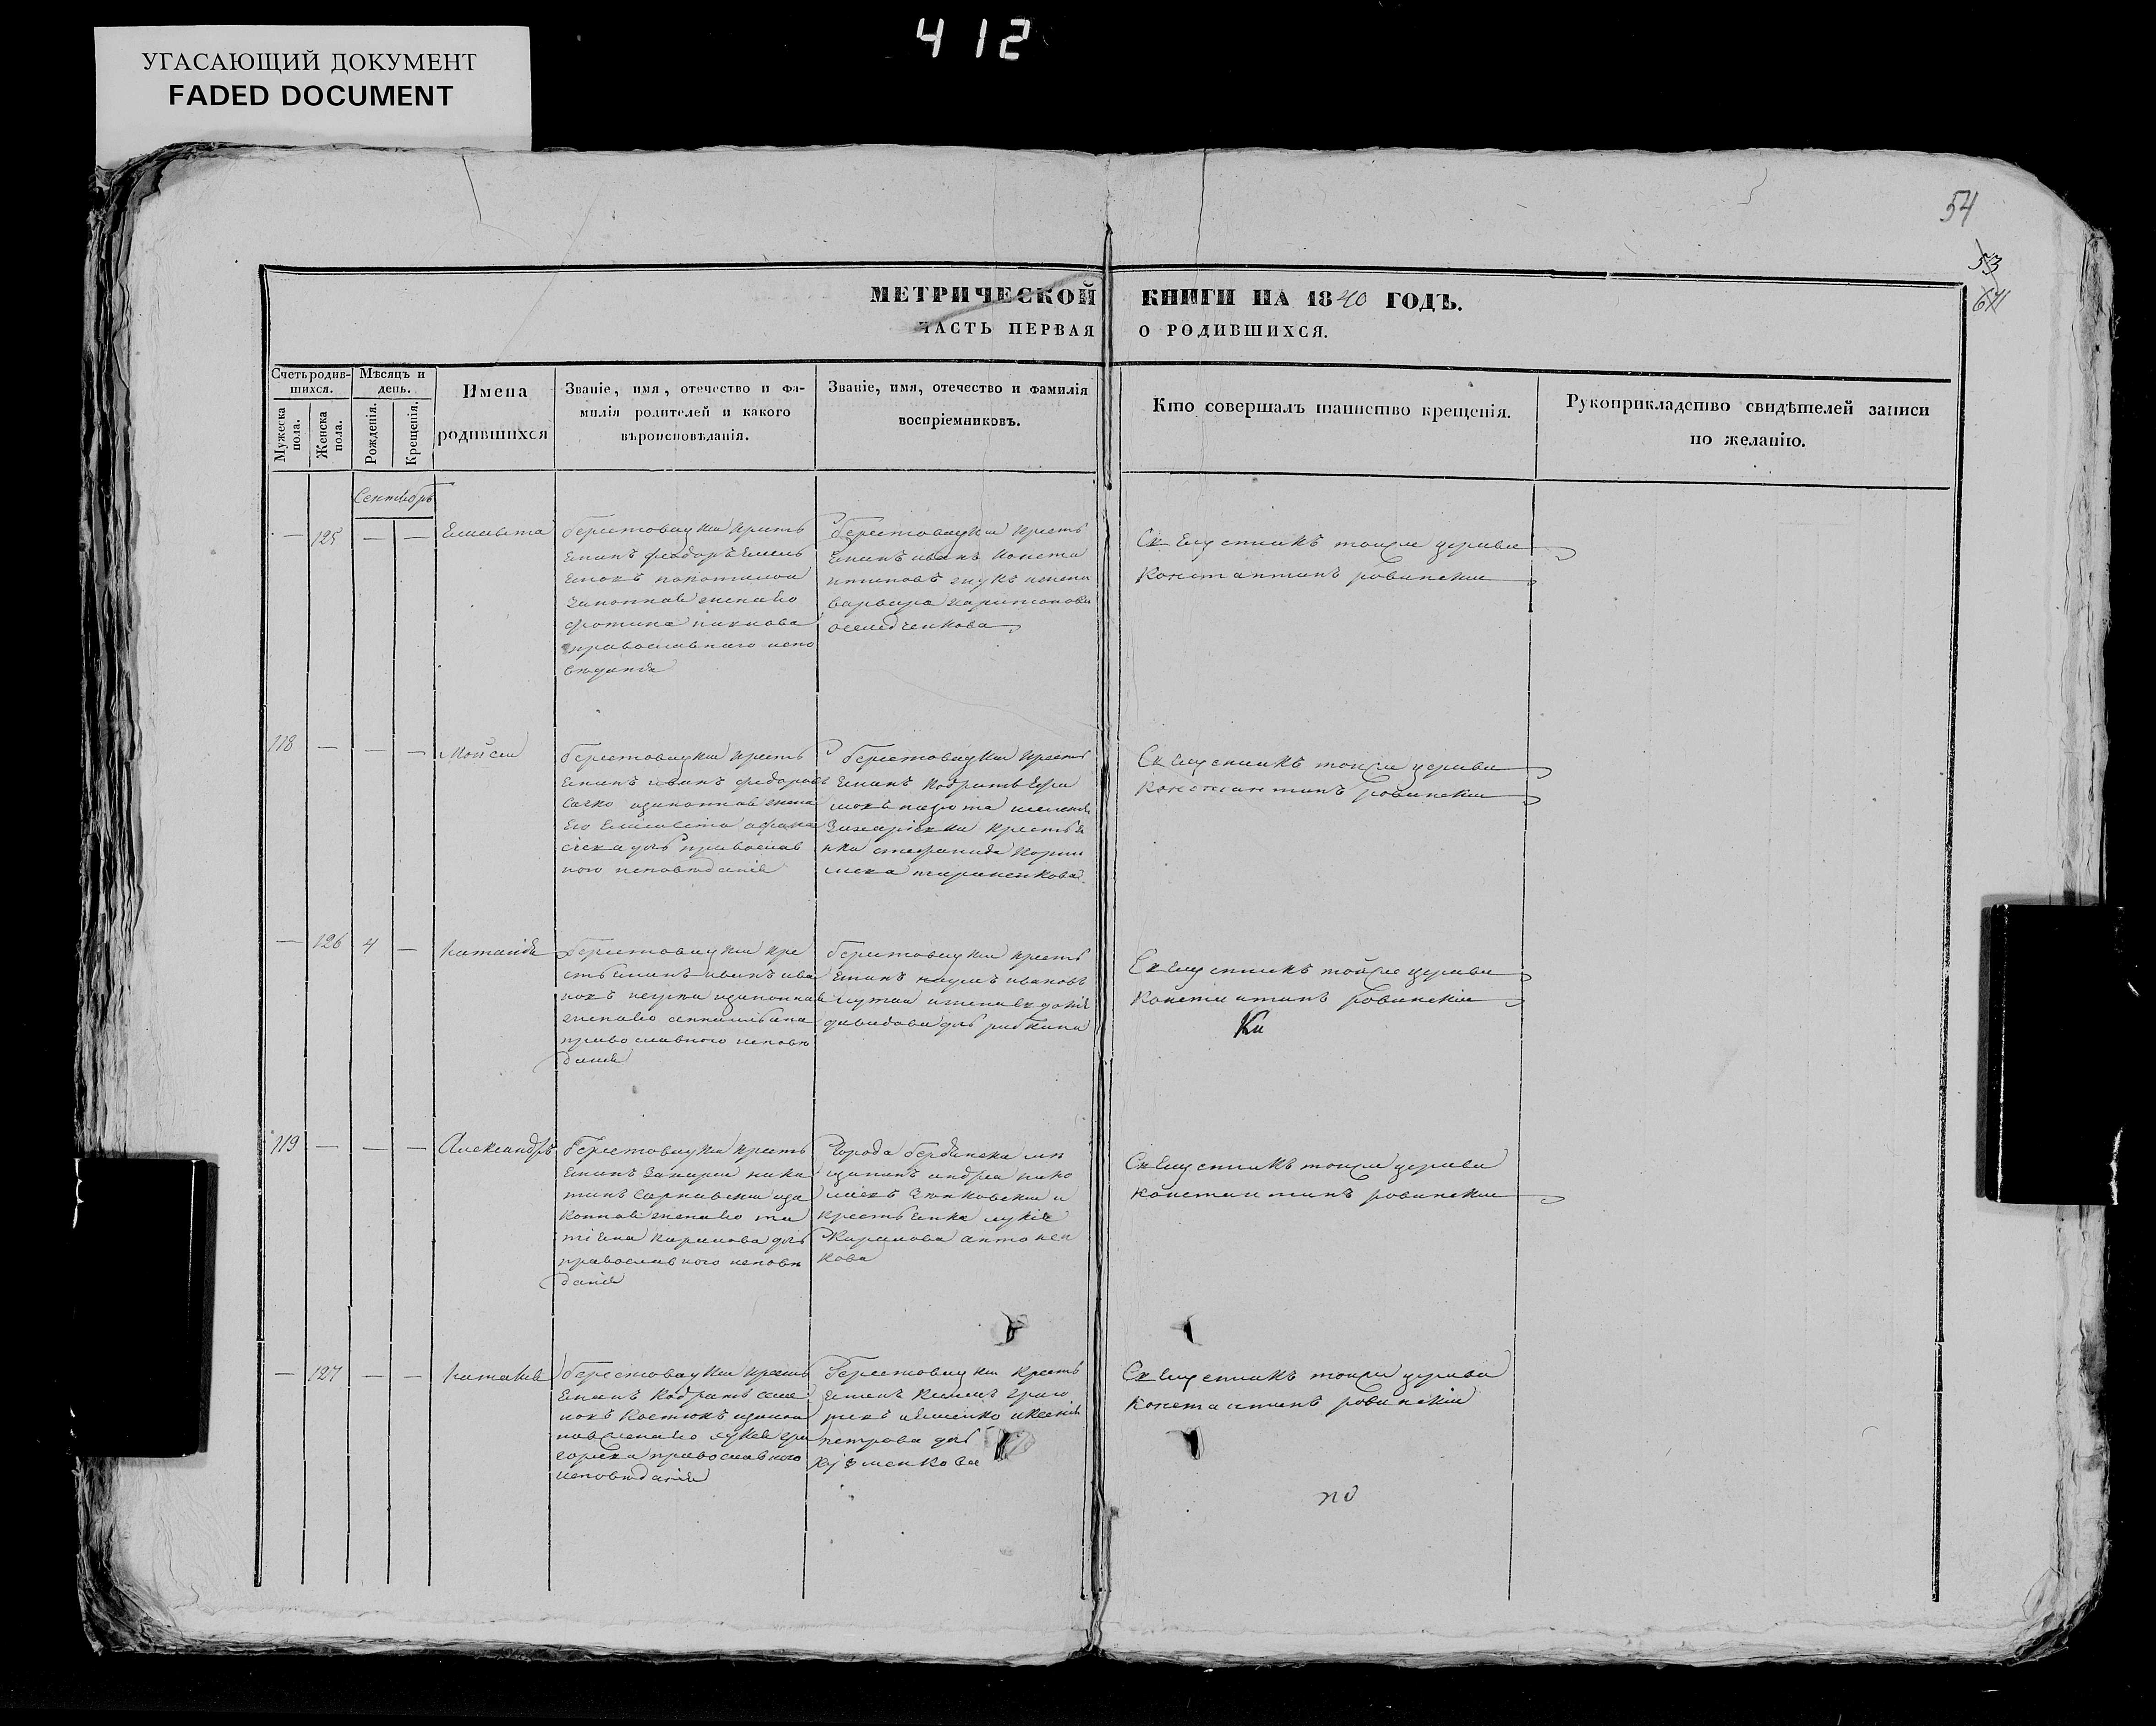 412
УГАСАЮЩИЙ ДОКУМЕНТ
FADED DOCUMENT
54
53
671
МЕТРИЧЕСКОЙ КНИГИ НА 1840 ГОДЪ.
ЧАСТЬ ПЕРВАЯ О РОДИВШИХСЯ.
Счетъ родив-
шихся.
Мужеска пола.
Женска пола.
Мѣсяцъ и
день.
Рожденія.
Крещенія.
Имена
родившихся
Званіе, имя, отечество и фа-
милія родителей и какого
вѣроисповѣданія.
Званіе, имя, отечество и фамилія
воспріемниковъ.
Кто совершалъ таинство крещенія.
Рукоприкладство свидѣтелей записи
по желанію.
Сентябрь
— 125 — —
Елисавета
берестовацкий кресть
янинъ феодоръ Емель
яновъ
законная жена его
фотина
православнаго испо
вѣданія
берестовацкий кресть
янинъ иванъ конста
нтиновъ
варвара харитонова
оселедченкова
Священникъ тойже церкви
Константинъ ровинский
118 — — —
Мойсей
берестовацкий кресть
янинъ иванъ федоровъ
сачко изаконная жена
его Елисавета афана
сіева дочь православ
ного исповѣданія
берестовацкий кресть
янинъ Кодратъ Ефи
мовъ
крестья
нка стефанида Корни
лиева тараненкова
Священникъ тойже церкви
Константинъ ровинский
— 126 4 —
наталія
берестовацкий кре
стьянинъ иванъ ива
новъ изаконная
жена его
православного исповѣ
данія
берестовацкий кресть
янинъ наумъ ивановъ
лутай иженаевдокія
давидова дочь рибкина
Священникъ тойже церкви
Константинъ ровинский
Ки
119 — — —
Александръ
берестовацкий кресть
янинъ Захарий ники
тинъ иза
конная женаего та
тіяна кирилова дочь
православного исповѣ
данія
Города бердянска мѣ
щанинъ андрей нико
лаевъ Зюнковский и
крестьянка лукія
Кирилова антонен
кова
Священникъ тойже церкви
константинъ ровинский
— 127 — —
наталія
берестовацкий кресть
янинъ Кодратъ семе
новъ Костюкъ изакон
наяженаего лукія гри
гориева православного
исповѣданія
берестовацкий кресть
янинъ Климъ григо
риевъ иксенія
петрова дочь
Кузменкова
Священникъ тойже церкви
Константинъ ровинский
по